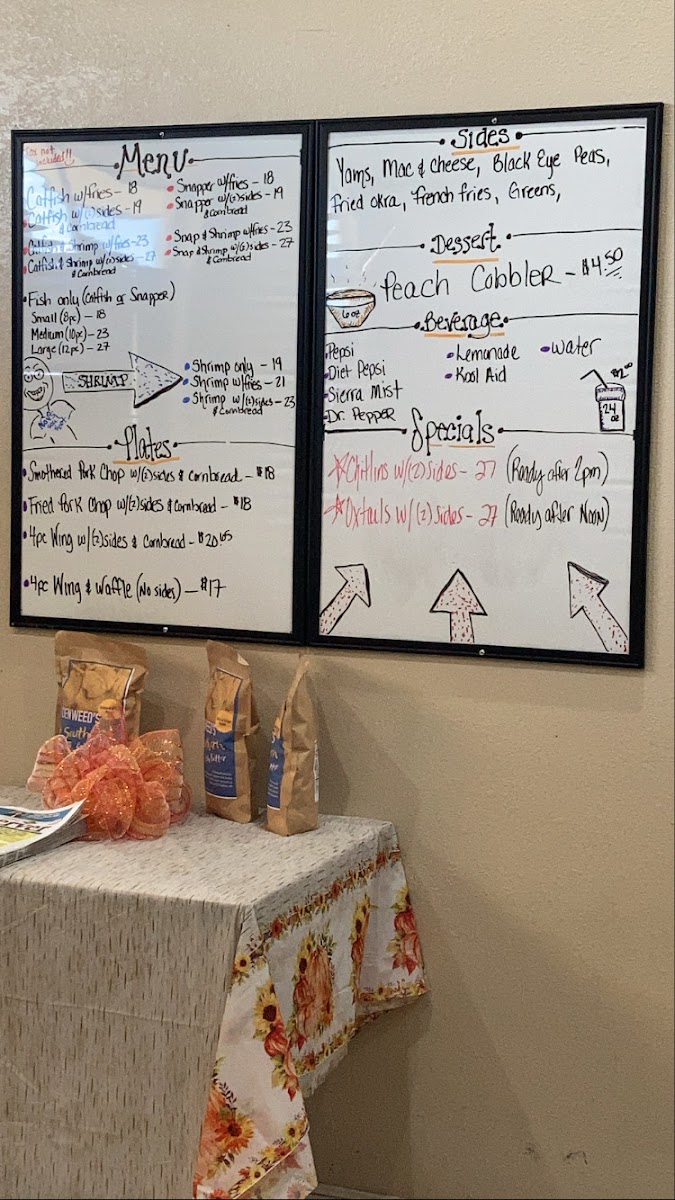 Tax not
included!!
Menu
Catfish w/fries - 18
Catfish w/(2)sides - 19
& Cornbread
Catfish & Shrimp w/fries - 23
Catfish & Shrimp w/(2)sides - 27
& Cornbread
Snapper w/fries - 18
Snapper w/(2)sides - 19
& Cornbread
Snap & Shrimp w/fries - 23
Snap & Shrimp w/(2)sides - 27
& Cornbread
Fish only (Catfish or Snapper)
Small (8pc) - 18
Medium (10pc) - 23
Large (12pc) - 27
SHRIMP
Shrimp only - 19
Shrimp w/fries - 21
Shrimp w/(2)sides - 23
& Cornbread
Plates
Smothered Pork Chop w/(2)sides & Cornbread - $18
Fried Pork Chop w/(2)sides & Cornbread - $18
4pc Wing w/(2)sides & Cornbread - $20
4pc Wing & Waffle (No sides) - $17
Sides
Yams, Mac & Cheese, Black Eye Peas,
Fried Okra, French fries, Greens,
Dessert
Peach Cobbler - $4.50
6 oz
Beverage
Pepsi
Diet Pepsi
Sierra Mist
Dr. Pepper
Lemonade
Kool Aid
Water
24
oz
Specials
Chitlins w/(2)sides - 27 (Ready after 2pm)
Oxtails w/(2)sides - 27 (Ready after Noon)
WEED'S